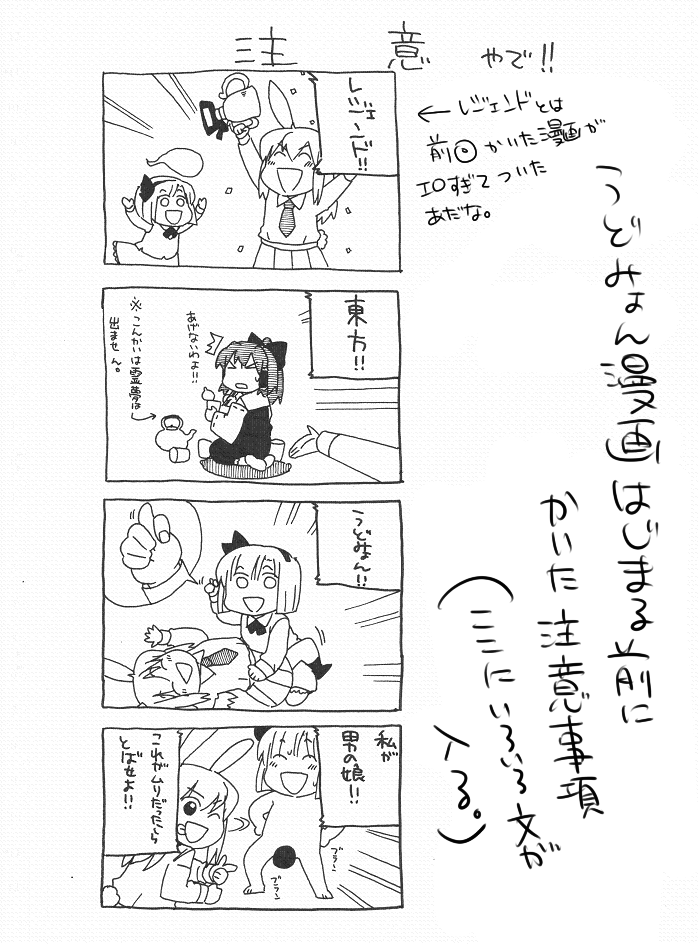 注意やで!!
レジェンド!!
←レジェンドとは
前回かいた漫画が
エロすぎてついた
あだな。
東方!!
あげないわよ!!
※こんかいは霊夢は
出ません。
うどみょん!!
私が
男の娘!!
これがムリだったら
とばせよ!!
ブラン
ブラン
うどみょん漫画はじまる前に
かいた注意事項
(ここにいろいろ文が
入る。)